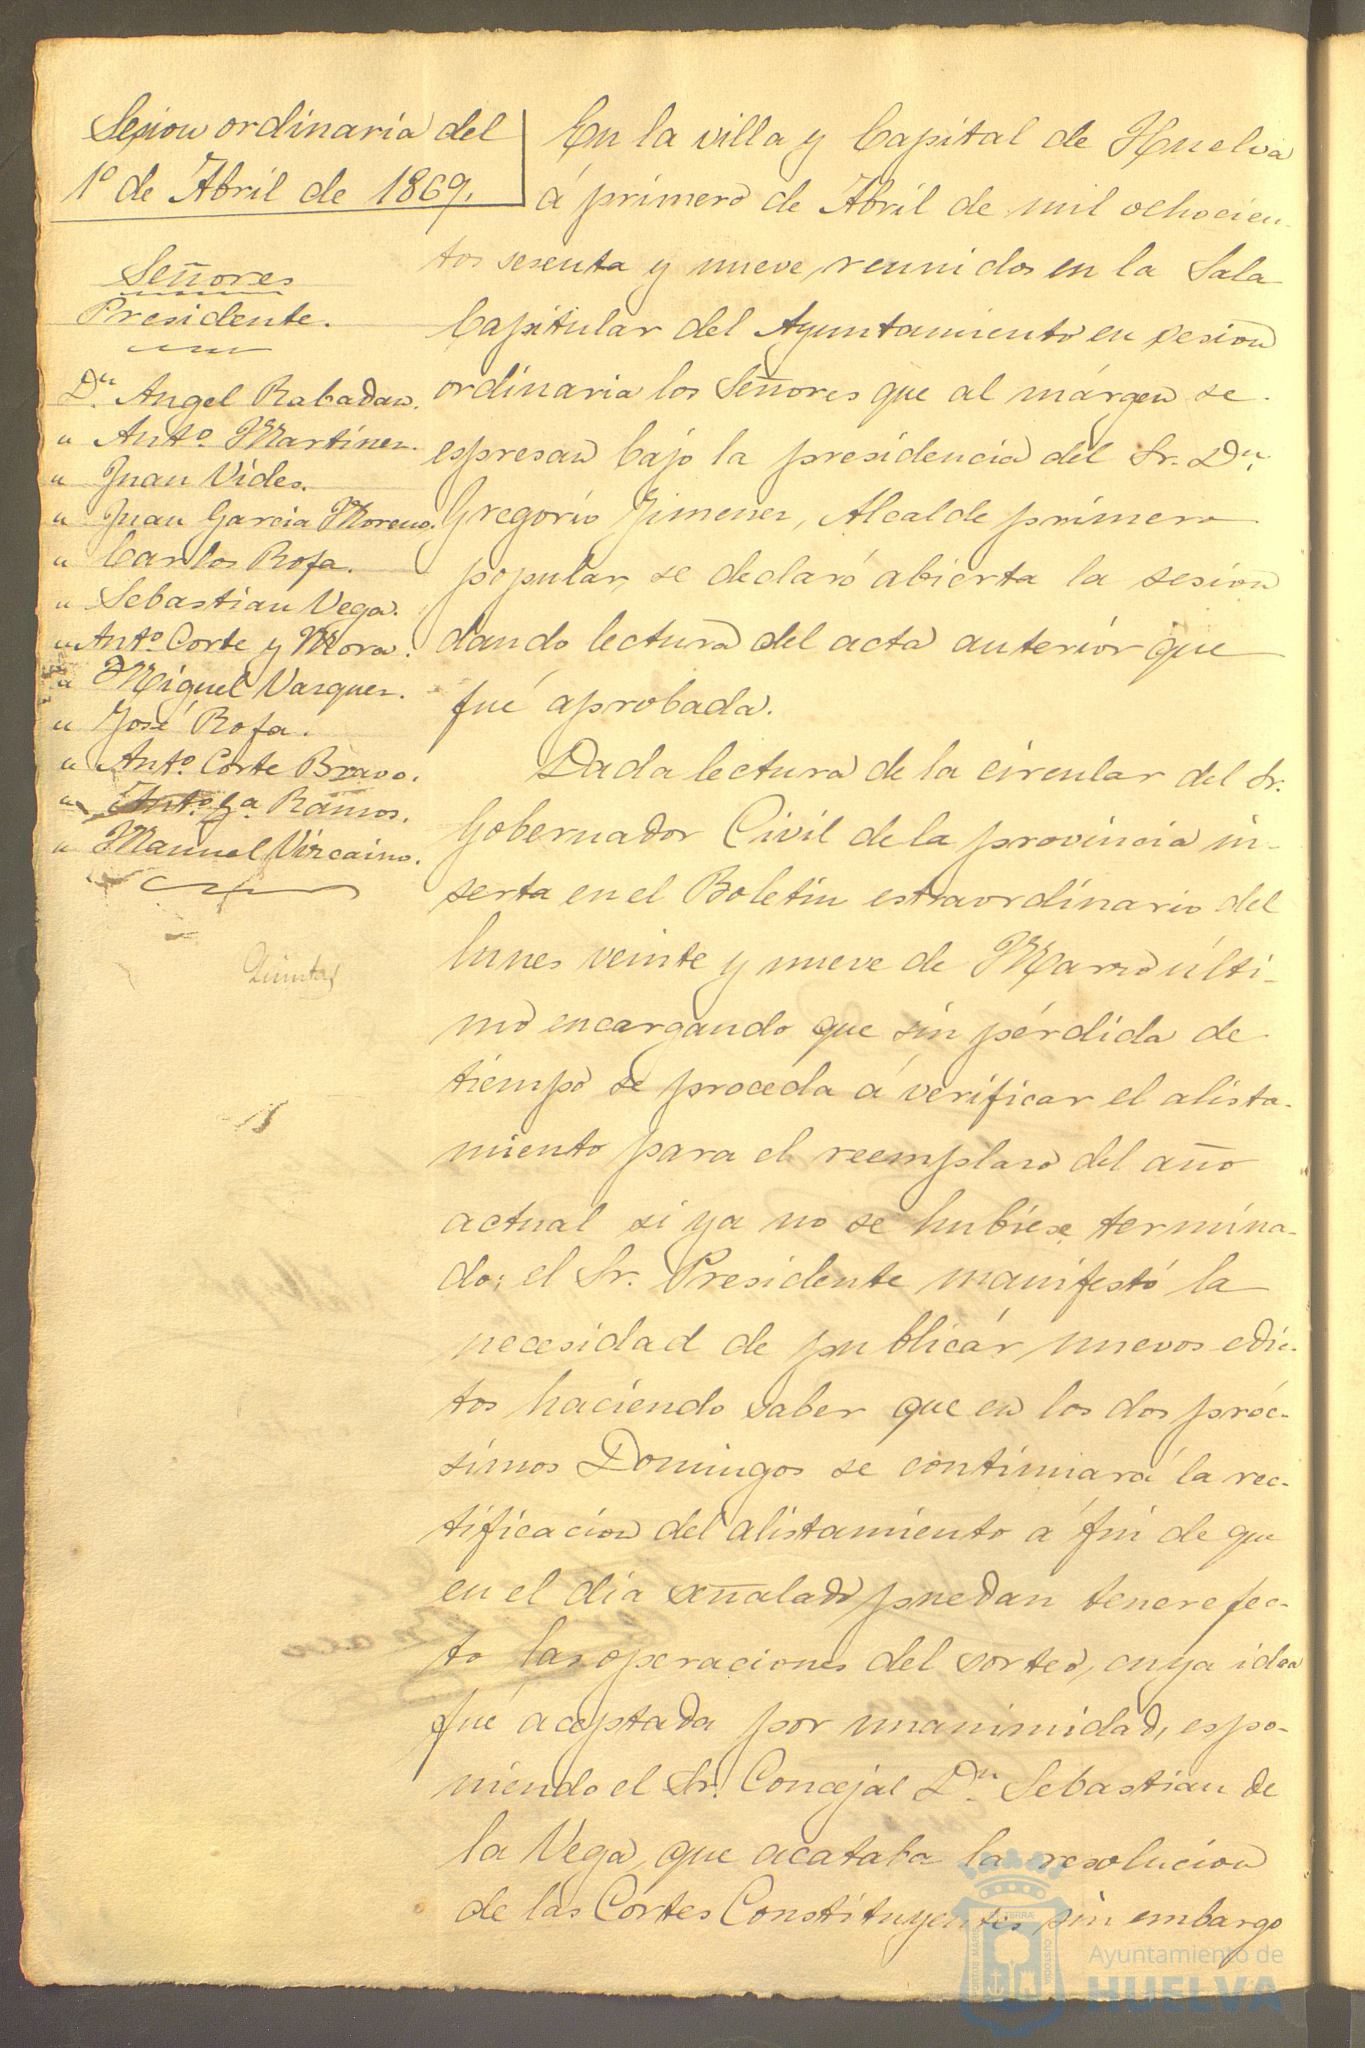 Sesion ordinaria del
1º de Abril de 1869.
Señores
Presidente.
Dn. Angel Rabadan.
" Antº. Martinez.
" Juan Vides.
" Juan Garcia Moreno.
" Carlos Rofa.
" Sebastian Vega.
" Antº. Corte y Mora.
" Miguel Vazquez.
" José Rofa.
" Antº. Corte Bravo.
" Antº. Gª. Ramos.
" Manuel Vizcaino.
Quintas
En la villa y Capital de Huelva
á primero de Abril de mil ochocien-
tos sesenta y nueve, reunidos en la Sala
Capitular del Ayuntamiento en sesion
ordinaria los Señores que al márgen se
espresan bajo la presidencia del Sr. Dn.
Gregorio Jimenez, Alcalde primero
popular, se declaró abierta la sesion
dando lectura del acta anteriór que
fué aprobada.
Dada lectura de la circular del Sr.
Gobernador Civil de la provincia in-
serta en el Boletin estraordinario del
lunes veinte y nueve de Marzo últi-
mo encargando que sin pérdida de
tiempo se proceda á verificar el alista-
miento para el reemplazo del año
actual si ya no se hubiese termina-
do; el Sr. Presidente manifestó la
necesidad de publicár nuevos edic-
tos haciendo saber que en los dos próc-
simos Domingos se continuará la rec-
tificacion del alistamiento á fin de que
en el dia señalado puedan tener efec-
to las operaciones del sorteo, cuya idea
fué aceptada por unanimidad, espo-
niendo el Sr. Concejal Dn. Sebastian de
la Vega, que acataba la resolucion
de las Córtes Constituyentes, sin embargo
Ayuntamiento de
HUELVA